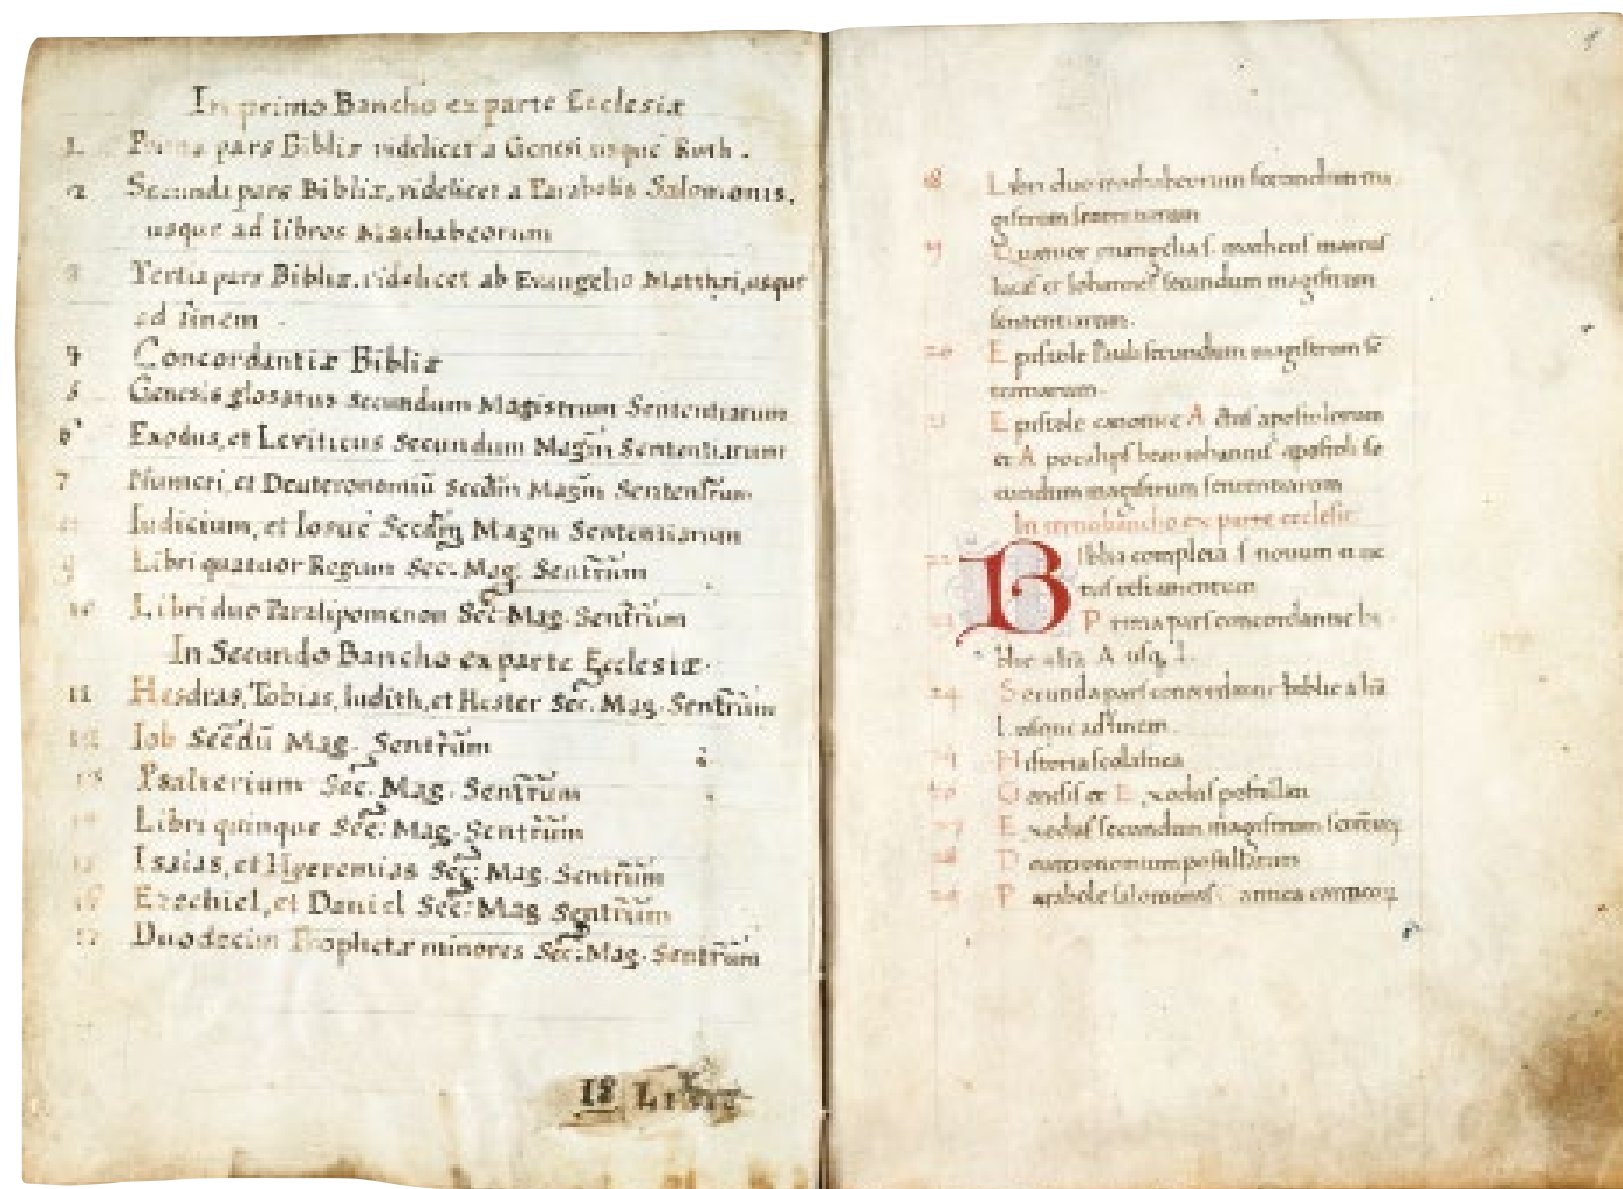 In primo Bancho ex parte Ecclesiæ
1. Prima pars Bibliæ videlicet a Genesi usque Ruth.
2 Secunda pars Bibliæ, videlicet a Parabolis Salomonis,
usque ad libros Machabeorum
3 Tertia pars Bibliæ, videlicet ab Evangelio Matthæi, usque
ad finem
4 Concordantiæ Bibliæ
5 Genesis glosatus secundum Magistrum Sententiarum
6 Exodus, et Leviticus secundum Magrm̃ Sententiarum
7 Numeri, et Deuteronomiũ Secdm̃ Magrm̃ Sentent̃rum
8 Iudicium, et Iosue Secdm̃ Magrm Sententiarum
9 Libri quatuor Regum Sec. Mag. Sent̃rum
10 Libri duo Paralipomenon Sec: Mag. Sent̃rum
In Secundo Bancho ex parte Ecclesiæ.
11 Hesdras, Tobias, Iudith, et Hester Sec. Mag. Sent̃rum
12 Iob Secdũ Mag. Sent̃rum
13 Psalterium Sec. Mag. Sent̃rum
14 Libri quinque Sec: Mag. Sent̃rum
15 Isaias, et Hyeremias Sec: Mag. Sent̃rum
16 Ezechiel, et Daniel Sec: Mag Sent̃rum
17 Duodecim Prophetæ minores Sec: Mag. Sent̃rum
18 Libri
18 Libri duo machabeorum secundum ma
gistrum sententiarum
19 Quatuor evangelia s. matheus marcus
lucas et Iohannes secundum magistrum
sententiarum.
20 Epistole Pauli secundum magistrum sē
tentiarum.
21 Epistole canonice Actus apostolorum
et Apocalips beati iohannis apostoli se
cundum magistrum sententiarum
In tertio bancho ex parte ecclesie
22 Biblia completa s. novum et ve
tus testamentum
23 Prima pars concordantie bi
blie a lr̃a A usq; L.
24 Secunda pars concordantie biblie a lr̃a
L usque ad finem.
25 Historia scolastica
26 Genesis et Exodus postillati
27 Exodus secundum magistrum
28 Deuteronomium postillatum
29 Parabole salomonis